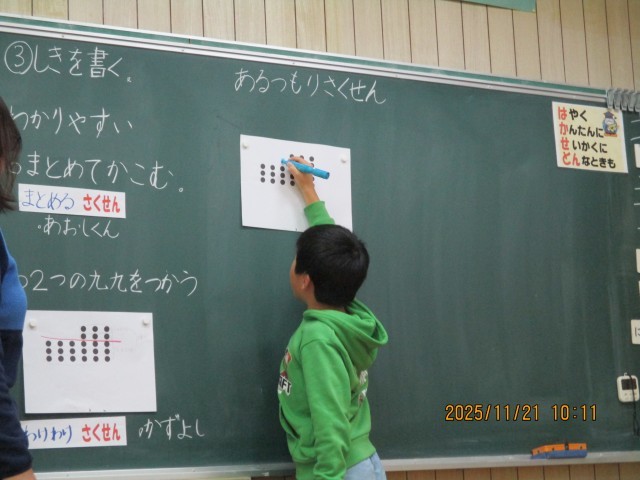 ③しきを書く。
わかりやすい
まとめてかこむ。
まとめる さくせん
・あおしくん
2つの九九をつかう
さくせん
かずよし
あるつもりさくせん
はやく
かんたんに
せいかくに
どんなときも
2025/11/21 10:11